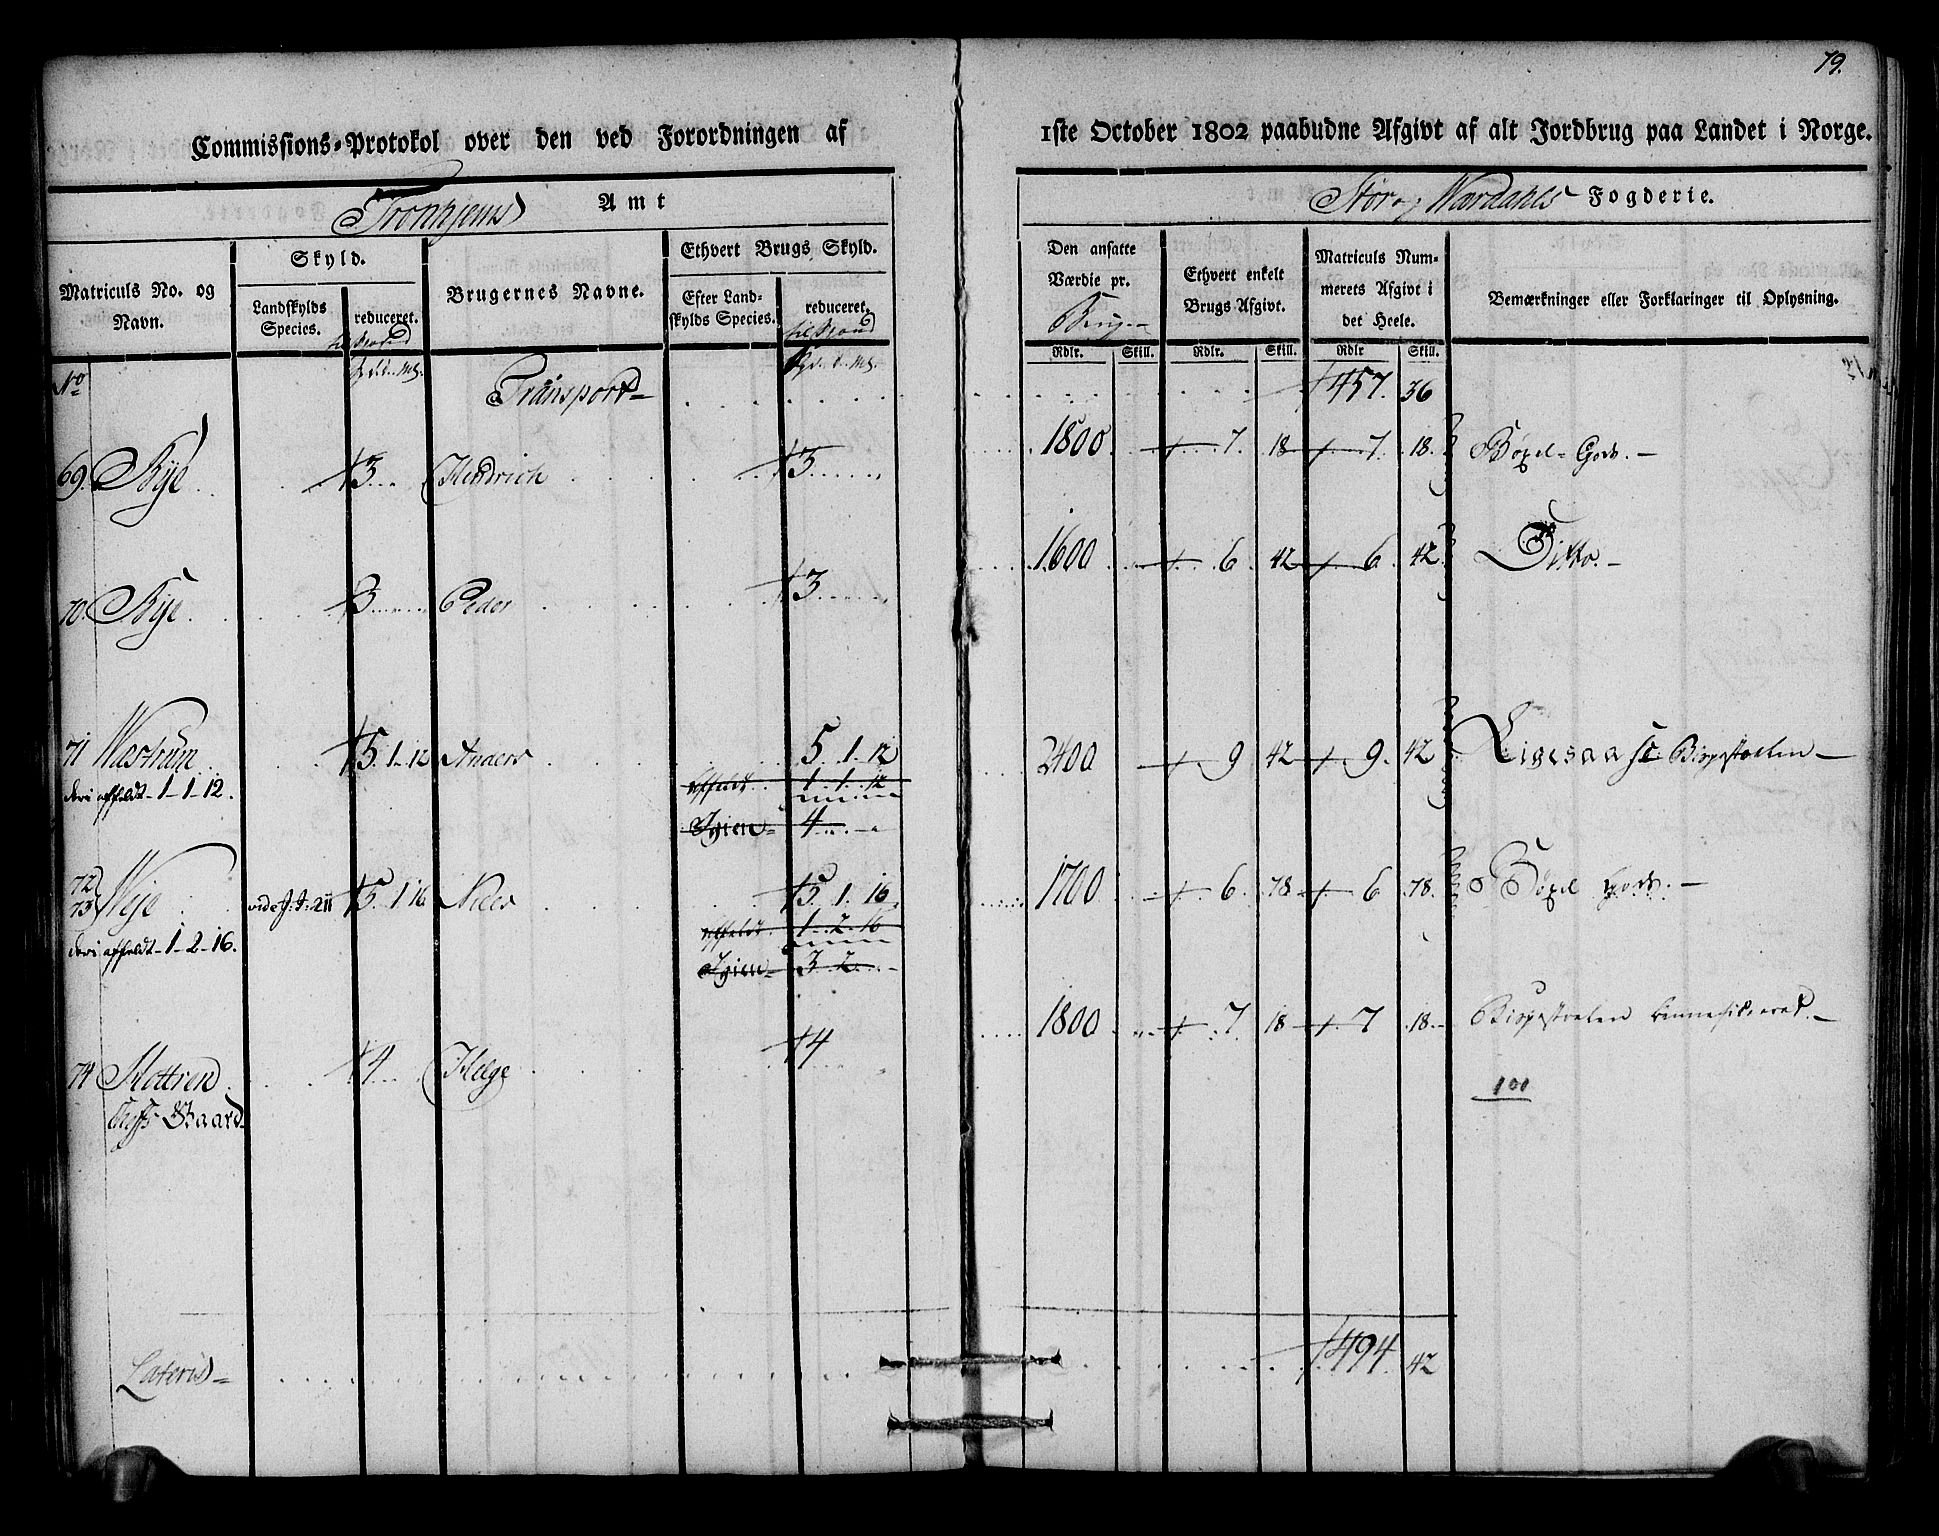 79.
Commissions-Protokol over den ved Forordningen af 1ste October 1802 paabudne Afgivt af alt Jordbrug paa Landet i Norge.
Tronhjems Amt
Stør og Værdahls Fogderie.
Matriculs No. og Navn.
Skyld.
Landskylds Species.
reduceret.
Brugernes Navne.
Ethvert Brugs Skyld.
Efter Landskylds Species.
reduceret.
Den ansatte Værdie pr. Brug
Ethvert enkelt Brugs Afgivt.
Matriculs Nummerets Afgivt i det Heele.
Bemærkninger eller Forklaringer til Oplysning.
Rdlr. Skill. Rdlr. Skill. Rdlr Skill.
No Transport 457. 36
69. Bye 3 Hendrich 3 1800 7. 18 7. 18. Bøxel-Gods.
70. Bye 3 Peder 3 1600 6 42 6 42 Ditto.
71 Wastrum 5. 1 12 Anders 5. 1. 12 2400 9 42 9. 42
deri affældt 1-1-12. affældt 1. 1. 12
Igien 4
72 73 Weje vide 211 5. 1 16. Niels 5. 1. 16. 1700 6. 78 6 78. Bøxel Gods.
deri affældt 1-2-16. affældt 1. 2. 16
Igien 3. 2
74 4 Helge 4 1800 7 18 7 18.
Gaard 100
Lateris 494. 42